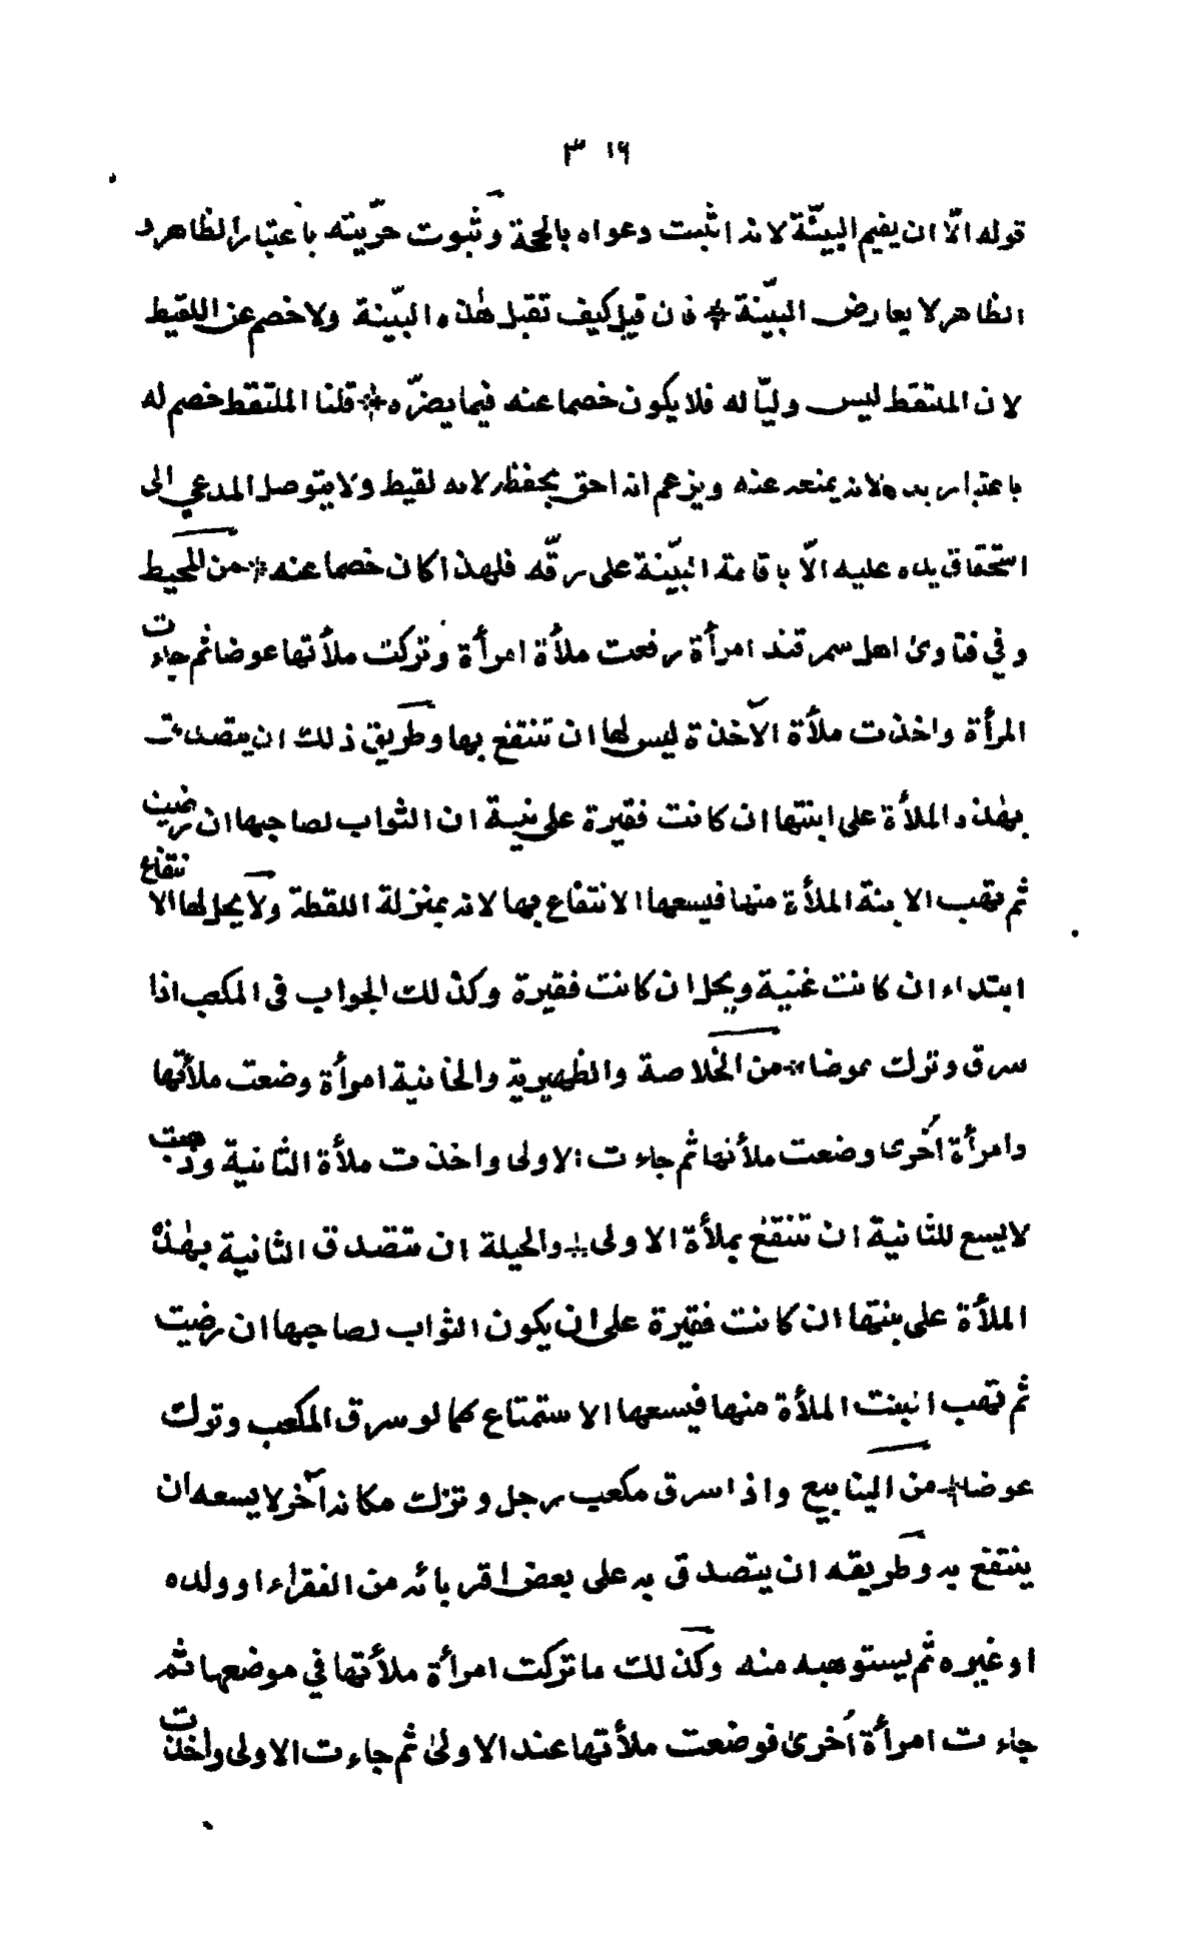 ٣١٦
قوله الّا ان يقيم البيّنة لانه اثبت دعواه بالحجة وثبوت حرّيته باعتبار الظاهر و
الظاهر لا يعارض البيّنة * فان قيل كيف تقبل هٰذه البيّنة ولا خصم عن اللقيط
لان الملتقط ليس وليّا له فلا يكون خصما عنه فيما يضرّه * قلنا الملتقط خصم له
باعتبار يده لانه يمنعه عنه ويزعم انه احق بحفظه لانه لقيط ولا يتوصل المدعي الى
استحقاق يده عليه الّا باقامة البيّنة على رقّه فلهذا كان خصما عنه * من المحيط
وفي فتاوىٰ اهل سمرقند امرأة رفعت ملأة امرأة وتركت ملأتها عوضا ثم جاءت
المرأة واخذت ملأة الآخذة ليس لها ان تنتفع بها وطريق ذلك ان يتصدقت
بهٰذه الملأة على ابنتها ان كانت فقيرة على نية ان الثواب لصاحبها ان رضيت
ثم تهب الابنة الملأة منها فيسعها الانتفاع بها لانه بمنزلة اللقطة ولا يحل لها الانتفاع
ابتداء ان كانت غنية ويحل ان كانت فقيرة وكذلك الجواب في المكعب اذا
سرق وترك عوضا * من الخلاصة والظهيرية والخانية امرأة وضعت ملأتها
وامرأة اُخرىٰ وضعت ملأتها ثم جاءت الاولى واخذت ملأة الثانية وذهبت
لا يسع للثانية ان تنتفع بملأة الاولى * والحيلة ان تتصدق الثانية بهٰذه
الملأة على بنتها ان كانت فقيرة على ان يكون الثواب لصاحبها ان رضيت
ثم تهب البنت الملأة منها فيسعها الاستمتاع كما لو سرق المكعب وترك
عوضا * من الينابيع واذا سرق مكعب رجل وترك مكانه آخر لا يسعه ان
ينتفع به وطريقه ان يتصدق به على بعض اقربائه من الفقراء او ولده
او غيره ثم يستوهبه منه وكذلك ما تركت امرأة ملأتها في موضعها ثم
جاءت امرأة اُخرىٰ فوضعت ملأتها عند الاولىٰ ثم جاءت الاولى واخذت